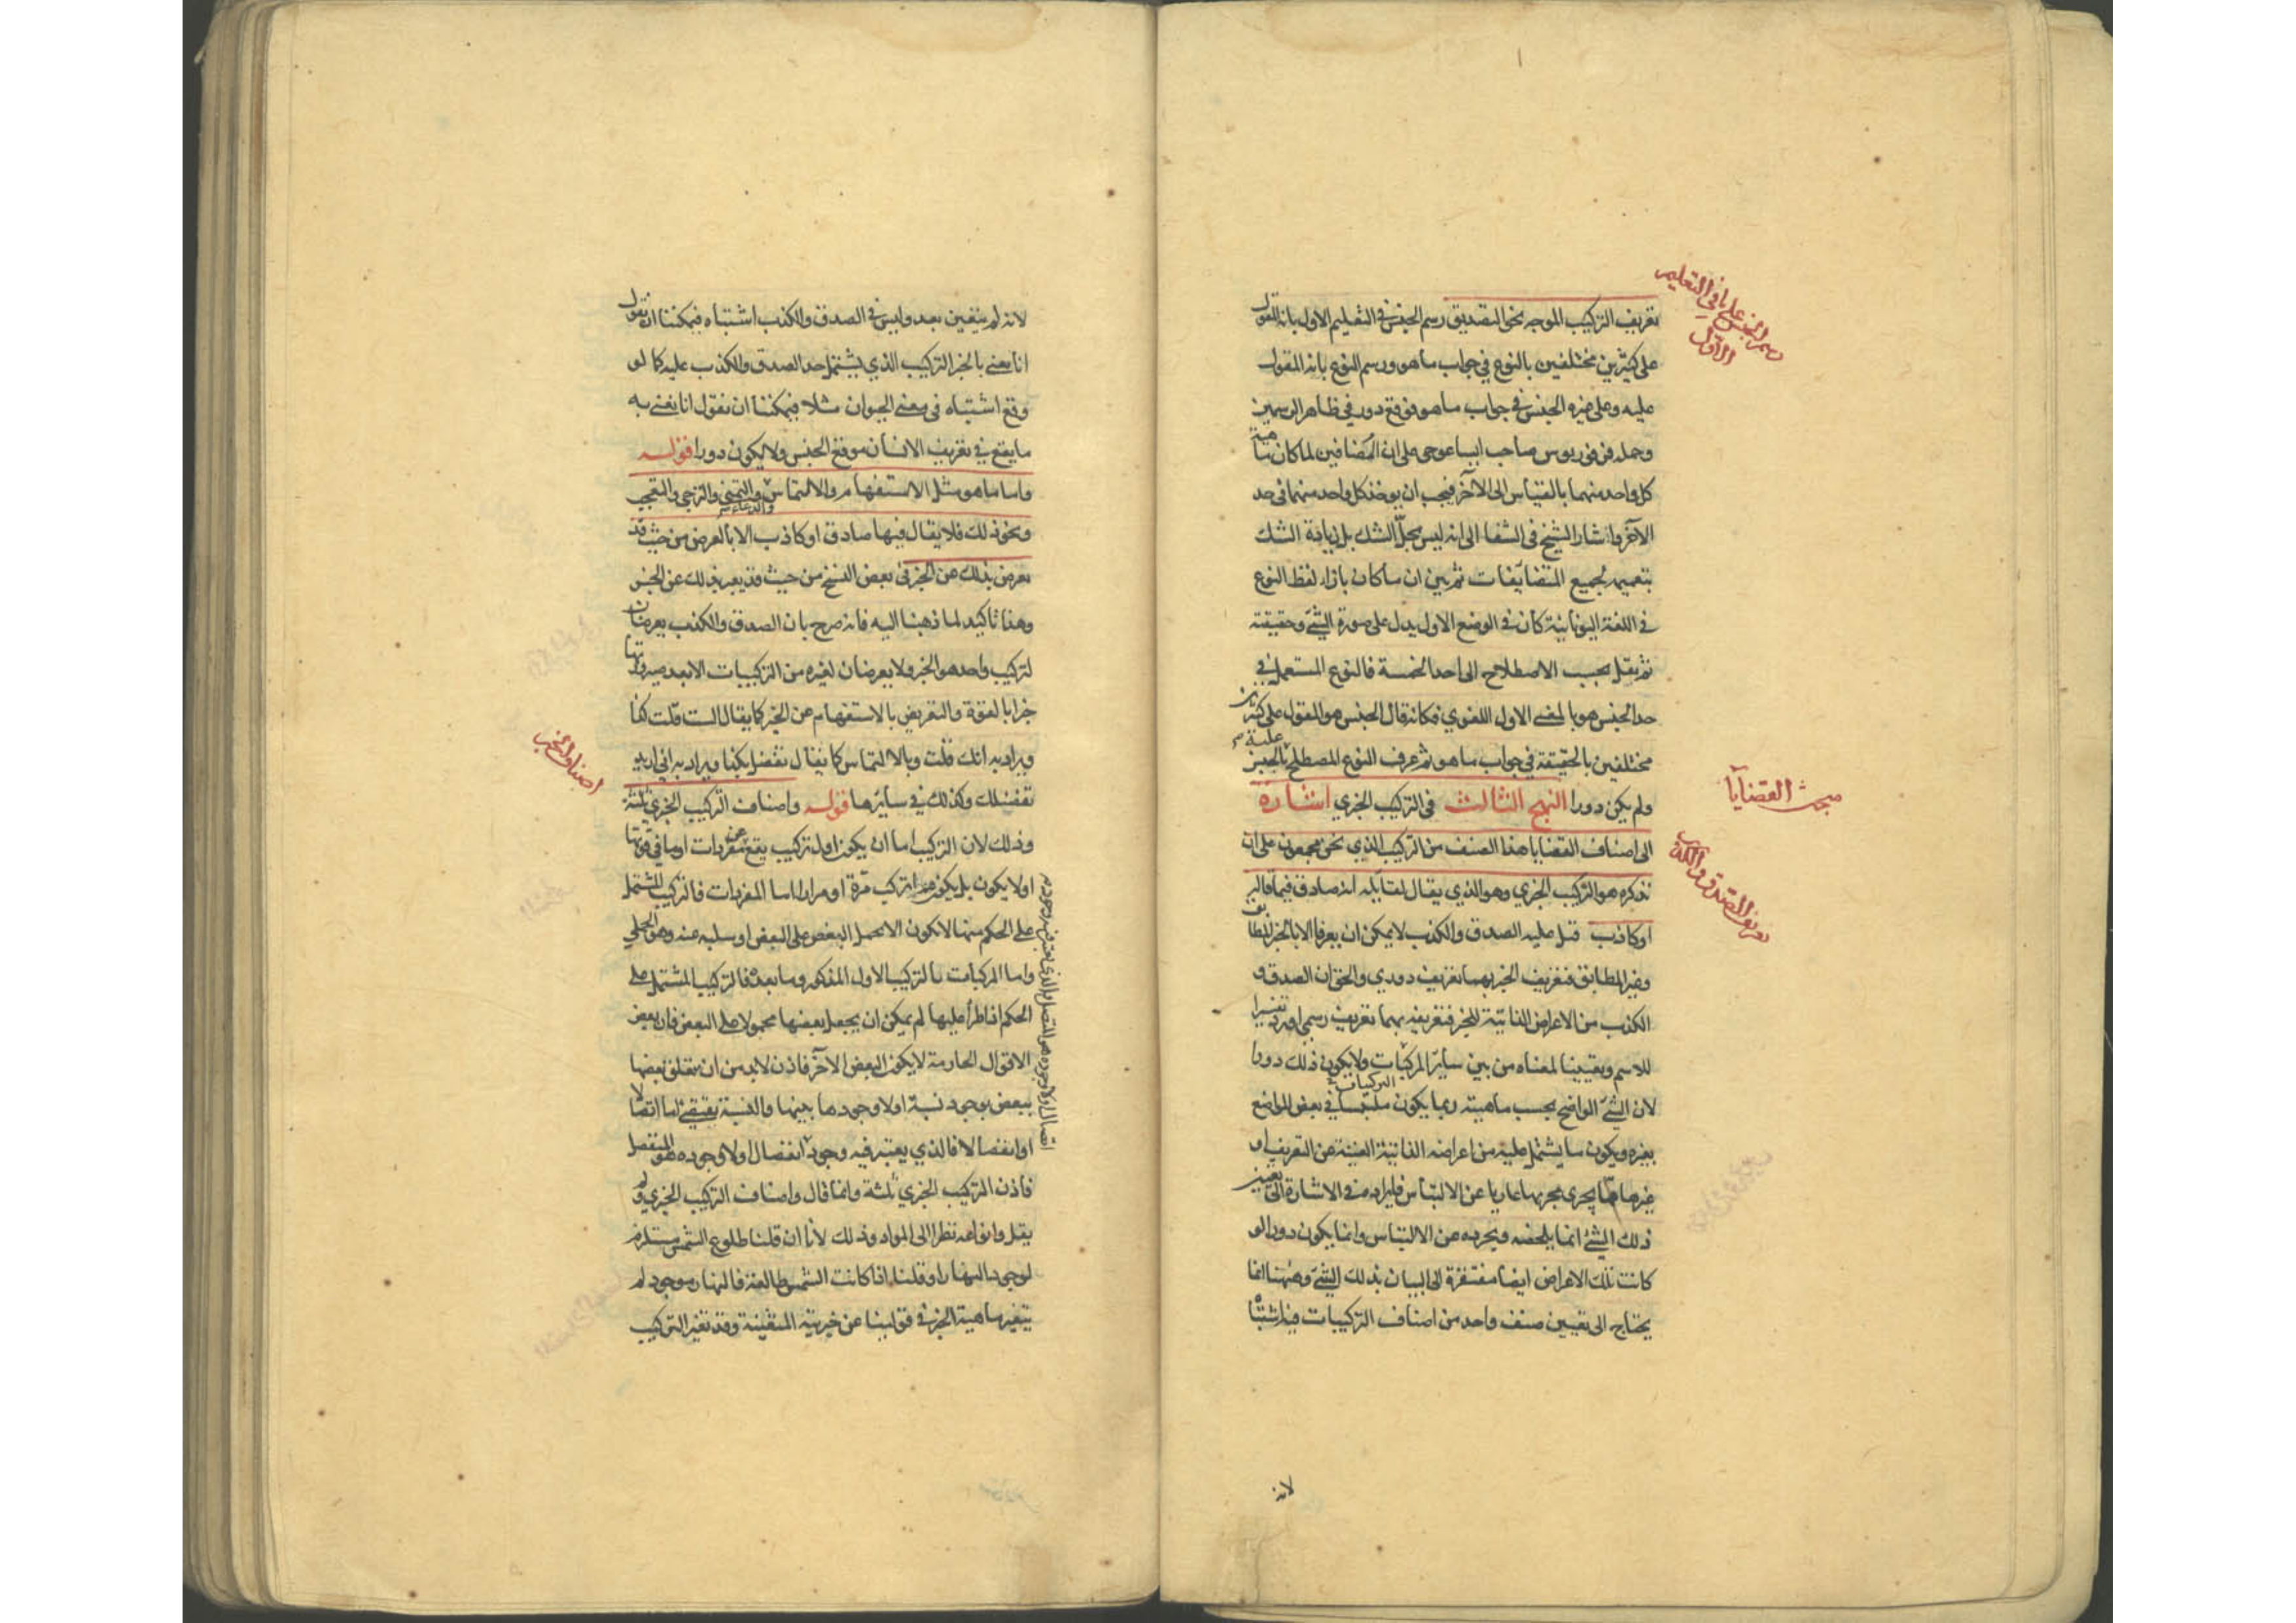 رسم الجنس على ما في التعليم
الاول
تعريف التركيب الموجه نحو التصديق رسم الجنس في التعليم الاول بانه المقول
على كثيرين مختلفين بالنوع في جواب ما هو ورسم النوع بانه المقول
عليه وعلى غيره الجنس في جواب ما هو فوقع دور في ظاهر الرسمين
وحمله فرفوريوس صاحب ايساغوجي على ان المضافين لما كان ماهية
كل واحد منهما بالقياس الى الآخر فيجب ان يوخذ كل واحد منهما في حد
الآخر واشار الشيخ في الشفا الى انه ليس بحل الشك بل زيادة الشك
بتعميمه لجميع المتضايفات ثم بين ان ما كان بازاء لفظ النوع
في اللغة اليونانية كان في الوضع الاول يدل على صورة الشئ وحقيقته
ثم نقل بحسب الاصطلاح الى احد الخمسة فالنوع المستعمل في
حد الجنس هو بالمعنى الاول اللغوي فكانه قال الجنس هو المقول على كثيرين
مختلفين بالحقيقة في جواب ما هو ثم عرف النوع المصطلح عليه بالجنس
مبحث القضايا
ولم يكن دورا النهج الثالث في التركيب الخبري اشارة
تعريف الصدق والكذب
الى اصناف القضايا هذا الصنف من التركيب الذي نحن مجمعون على ان
نذكره هو التركيب الخبري وهو الذي يقال لقايله انه صادق فيما قاله
او كاذب قيل عليه الصدق والكذب لا يمكن ان يعرفا الا بالخبر المطابق
وغير المطابق فتعريف الخبر بهما تعريف دوري والحق ان الصدق و
الكذب من الاعراض الذاتية للخبر فتعريفه بهما تعريف رسمي اورد تفسيرا
للاسم وتعيينا لمعناه من بين سائر المركبات ولا يكون ذلك دورا
التركيبات
لان الشئ الواضح بحسب ماهيته ربما يكون ملتبسا في بعض المواضع
بغيره ويكون ما يشتمل عليه من اعراضه الذاتية الغنية عن التعريف او
غيرها مما يجري مجريها عاريا عن الالتباس فايراده في الاشارة الى تعيين
ذلك الشئ انما يلخصه ويجرده عن الالتباس وانما يكون دورا لو
كانت تلك الاعراض ايضا مفتقرة الى البيان بذلك الشئ وههنا انما
يحتاج الى تعيين صنف واحد من اصناف التركيبات فيه اشتباه
لانه
لانه لم يتعين بعد وليس في الصدق والكذب اشتباه فيمكننا ان نقول
انا نعني بالخبر التركيب الذي يشتمل حد الصدق والكذب عليه كما لو
وقع اشتباه في معنى الحيوان مثلا فيمكننا ان نقول انا نعني به
ما يقع في تعريف الانسان موقع الجنس ولا يكون دورا قوله
واما ما هو مثل الاستفهام والالتماس والتمني والترجي والتعجب
والدعاء
ونحو ذلك فلا يقال فيها صادق او كاذب الا بالعرض من حيث قد
يعرض بذلك عن الخبر في بعض النسخ من حيث قد يعبر بذلك عن الخبر
وهذا تاكيد لما ذهبنا اليه فانه صرح بان الصدق والكذب يعرضان
لتركيب واحد هو الخبر ولا يعرضان لغيره من التركيبات الا بعد صيرورتها
خبرا بالقوة والتعريض بالاستفهام عن الخبر كما يقال الست قلت كذا
ويراد به انك قلت وبالالتماس كما يقال تفضل بكذا ويراد به اني اريد
اصناف الخبر
تفضلك وكذلك في سائرها قوله واصناف التركيب الخبري ثلثة
وذلك لان التركيب اما ان يكون اول تركيب يقع عن مفردات او ما في قوتها
او لا يكون بل يكون مما تركب مرة او مرارا اما المفردات فالتركيب المشتمل
على الحكم منها لا يكون الا بحمل البعض على البعض او سلبه عنه وهو الحملي
واما المركبات بالتركيب الاول المذكور وما بعده فالتركيب المشتمل على
الحكم اذا طرأ عليها لم يمكن ان يجعل بعضها محمولا على البعض فان بعض
الاقوال الجازمة لا يكون البعض الآخر فاذن لا بد من ان يتعلق بعضها
ببعض بوجود نسبة او لا وجودها بينها والنسبة تقتضي اما اتصالا
او انفصالا فالذي يعتبر فيه وجود انفصال او لا وجوده هو المنفصل
والذي يعتبر فيه وجود اتصال او لا وجوده هو المتصل
فاذن التركيب الخبري ثلثة وانما قال واصناف التركيب الخبري ولم
يقل وانواعه نظرا الى المواد وذلك لأنا ان قلنا طلوع الشمس مستلزم
لوجود النهار او قلنا اذا كانت الشمس طالعة فالنهار موجود لم
يتغير ماهية الخبر في قولينا عن خبريته المتعينة وقد تغير التركيب